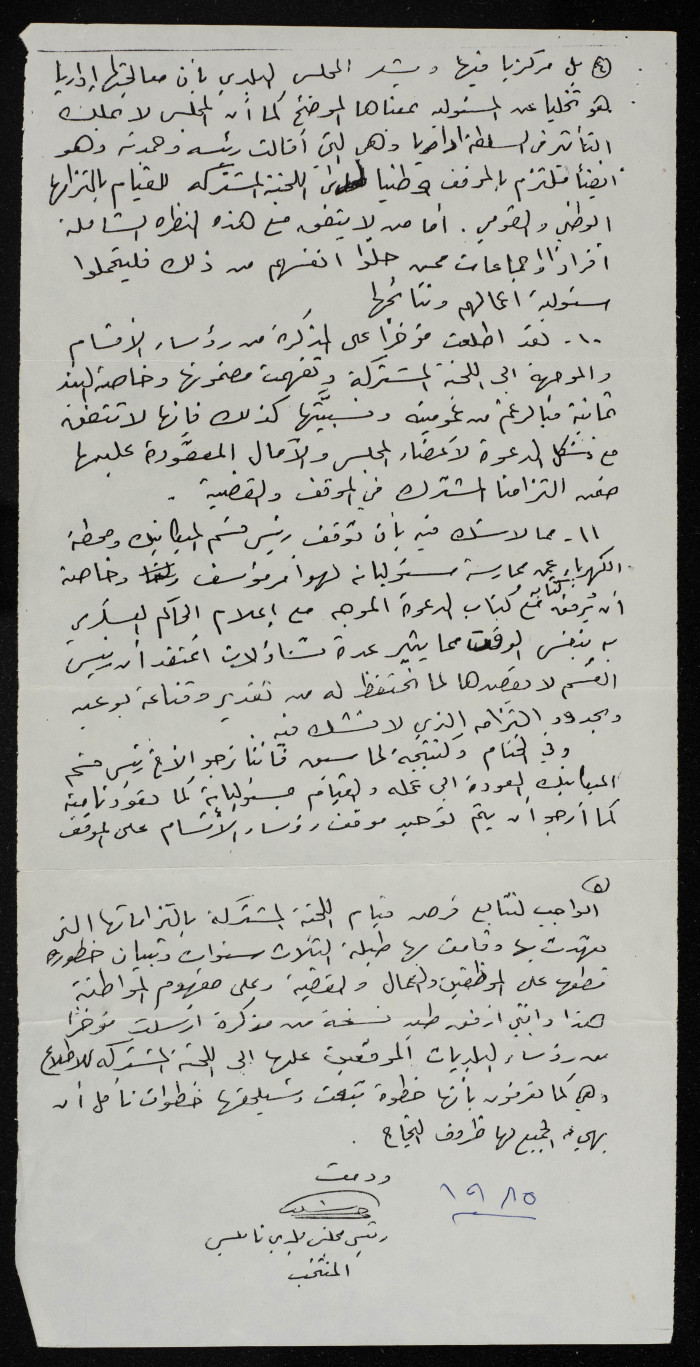 ٤) بل مركزيا فيها ويشعر المجلس البلدي بأن معالجتها إداريا
هو تخليا عن المسئولية بمعناها الموضح كما أن المجلس لا يملك
التأثير في السلطة وهي التي أقالت رئيسه وحمدته وهو
أيضا ملتزم بالموقف وطنيا اللجنة المشتركة للقيام بالتزامها
الوطني والقومي . أما من لا يتفق مع هذه النظرة الشاملة
أفرادا أو جماعات ممن حللوا أنفسهم من ذلك فليتحملوا
مسئولية أعمالهم ونتائجها
١٠- لقد اطلعت مؤخرا على المذكرة من رؤساء الأقسام
والموجهة الى اللجنة المشتركة وتفهمت مضمونها وخاصة البند
ثمانية فبالرغم من عموميته ونسبيتها كذلك فإنها لا تتفق
مع شكل الدعوة لأعضاء المجلس والآمال المعقودة عليها
ضمن التزامنا المشترك في الموقف والقضية .
١١- مما لا شك فيه بأن توقف رئيس قسم الميكانيك ومحطة
الكهرباء عن ممارسة مسئولياته لهو أمر مؤسف وخاصة
أن يرفق كتابه مع كتاب الدعوة الموجه مع إعلام الحاكم العسكري
به بنفس الوقت مما يثير عدة تساؤلات أعتقد أن رئيس
القسم لا يقصدها لما نحتفظ له من تقدير وقناعة بوعيه
وبحدود التزامه الذي لا نشك فيه .
وفي الختام وكنتيجة لما سبق فأننا نرجو الأخ رئيس قسم
الميكانيك العودة الى عمله والقيام بمسئولياته كما تعودنا منه
كما أرجو أن يتم توحيد موقف رؤساء الأقسام على الموقف
٥)
الواجب لنتابع فرص قيام اللجنة المشتركة بالتزاماتها التي
تعهدت بها وقامت بها طيلة الثلاث سنوات وتبيان خطورة
قطعها على الموظفين والعمال والقضية وعلى مفهوم المواطنة
هذا وإنني أرفق طيه نسخة من مذكرة أرسلت مؤخرا
من رؤساء البلديات الموقعين عليها الى اللجنة المشتركة للاطلاع
وهي كما تعرفون بأنها خطوة تبعت وستلحقها خطوات نأمل أن
يهيء الجميع لها ظروف النجاح .
ودمتم
١٩٨٥
رئيس مجلس بلدي نابلس
المنتخب